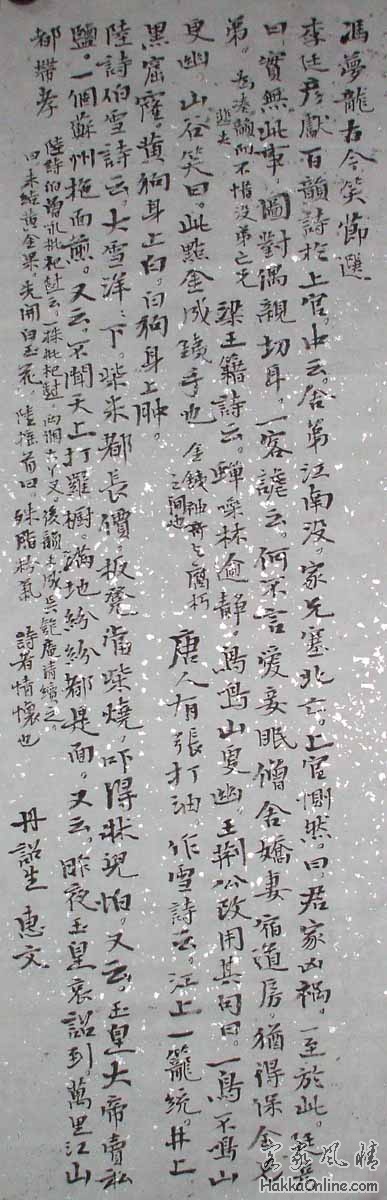 馮夢龍古今笑節選
李廷彥獻百韻詩於上官。中云。舍弟江南沒。家兄塞北亡。上官惻然。曰。君家凶禍。一至於此。廷彥
曰。實無此事。圖對偶親切耳。一客謔云。何不言愛妾眠僧舍嬌妻宿道房。猶得保全兄
弟。為湊韻而不惜沒弟亡兄 悲夫 梁王籍詩云。蟬噪林逾靜。鳥鳴山更幽。王荊公改用其句曰。一鳥不鳴山
更幽。山谷笑曰。此點金成鐵手也 金鐵神奇之腐朽之間也 唐人有張打油。作雪詩云。江上一籠統。井上
黑窟窿。黃狗身上白。白狗身上腫。
陸詩伯雪詩云。大雪洋洋下。柴米都長價。板凳當柴燒。吓得牀兒怕。又云。玉皇大帝賣私
鹽。一個蘇州拖面煎。又云。不聞天上打羅櫥。滿地紛紛都是面。又云。昨夜玉皇哀詔到。萬里江山
都帶孝
陸詩伯曾詠枇杷樹云。一株枇杷樹。兩個大丫叉。後韻未成。吳匏庵請續之。
曰。未結黃金果。先開白玉花。陸搖首曰。殊脂粉氣 詩者情懷也
丹詔生 惠文
客家風情
HakkaOnline.com